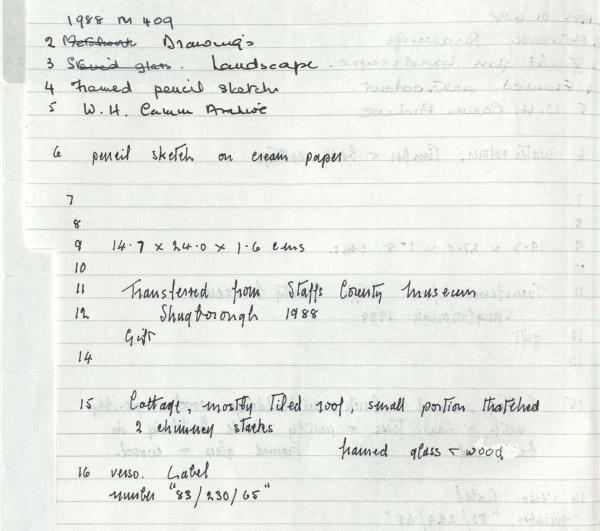 1988 M 409
2 Drawings
3 Stained glass. Landscape.
4 Framed pencil sketch
5 W.H. Camm Archive
6 pencil sketch on cream paper
7
8
9 14.7 x 24.0 x 1.6 cms
10
11 Transferred from Staffs County Museum
12 Shugborough 1988
Gift
14
15 Cottage, mostly tiled roof, small portion thatched
2 chimney stacks
framed glass & wood
16 verso. Label
number "83/230/65"